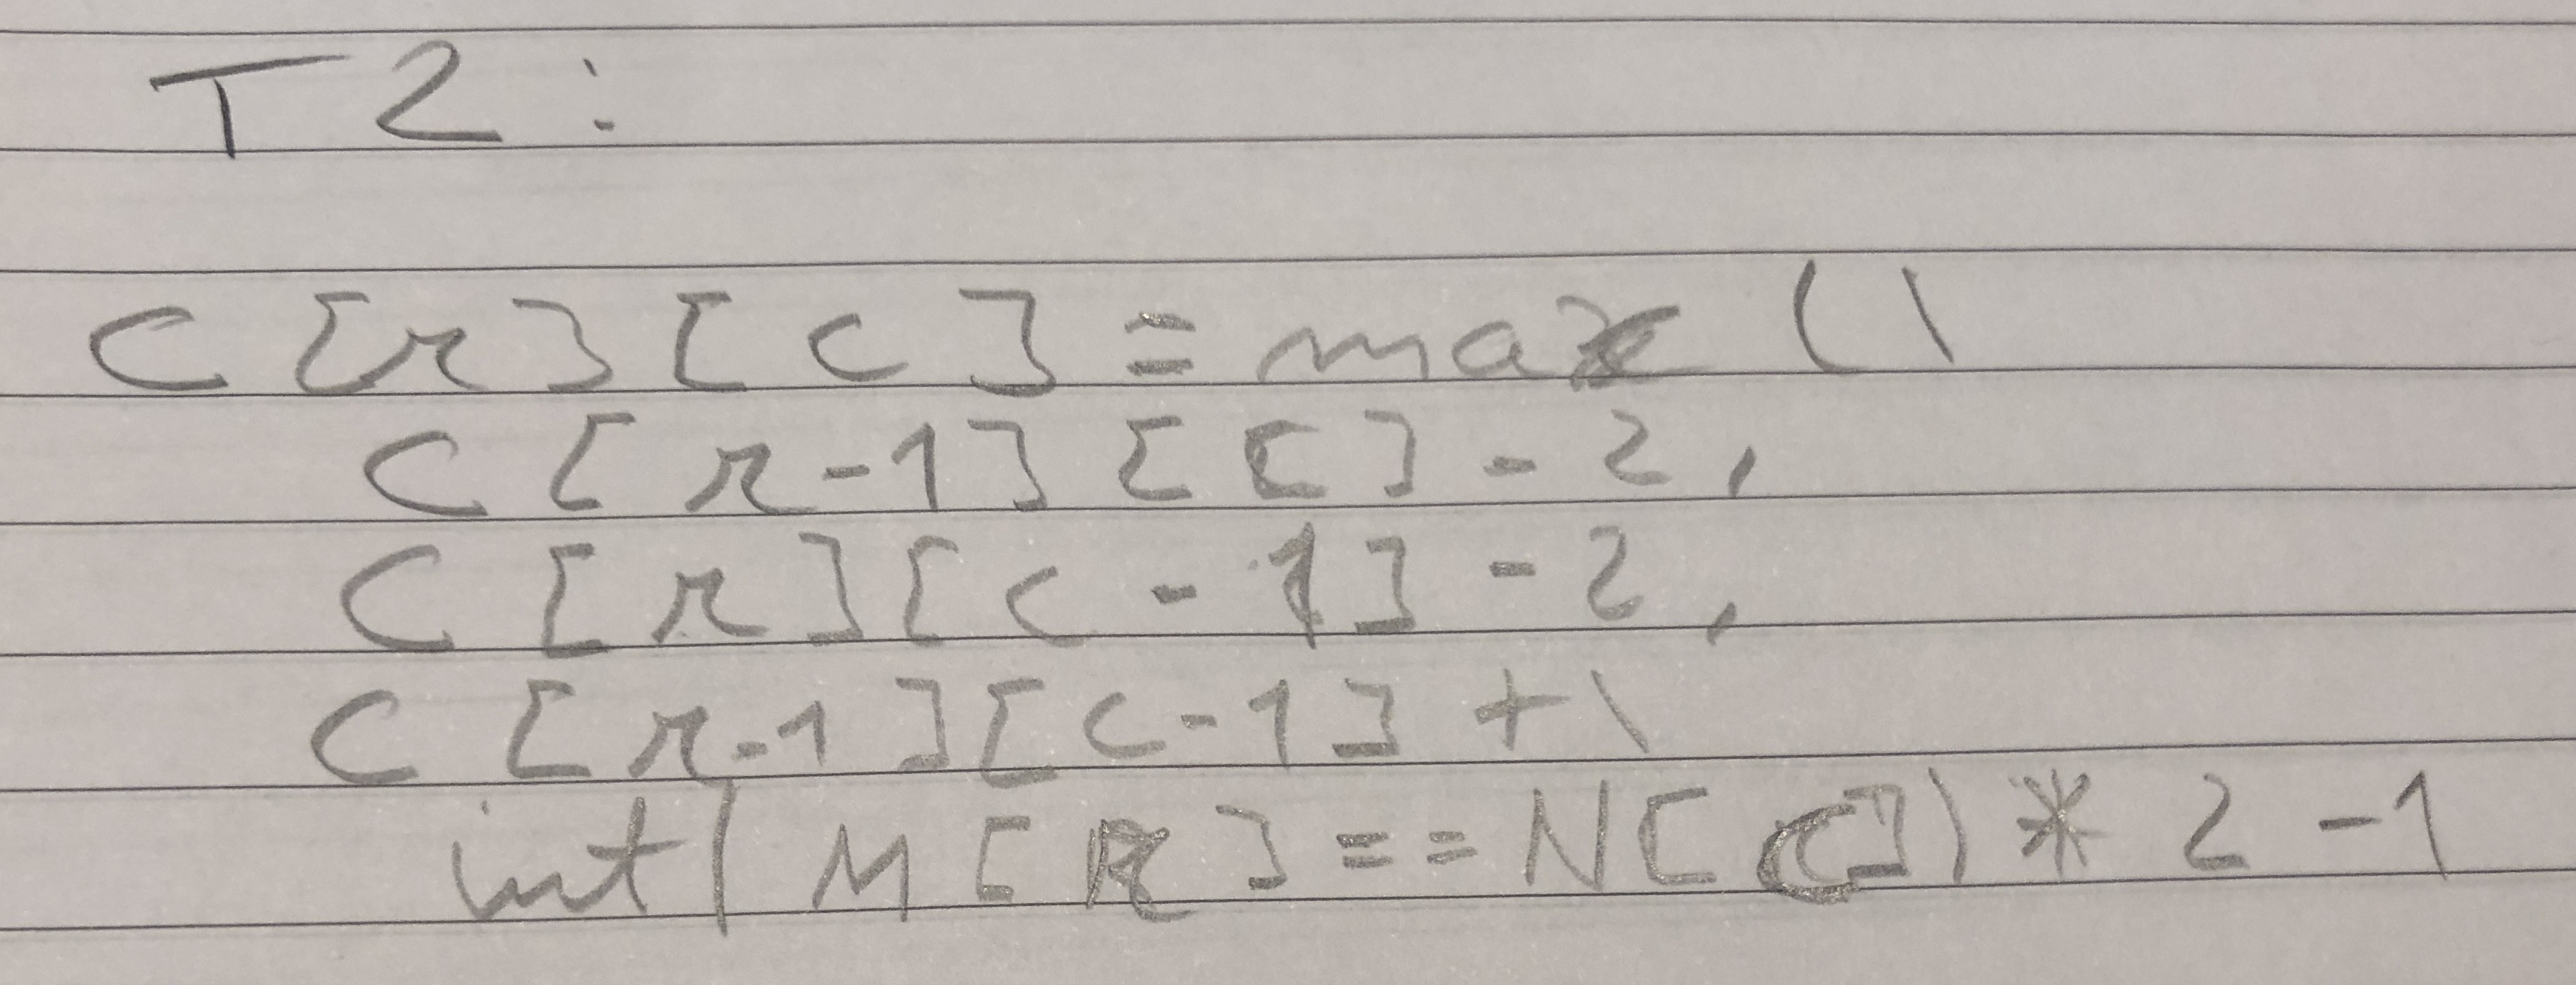 T2:
C[r][c] = max (\
C[r-1][c] - 2,
C[r][c-1] - 2,
C[r-1][c-1] + \
int(M[r] == N[c]) * 2 - 1